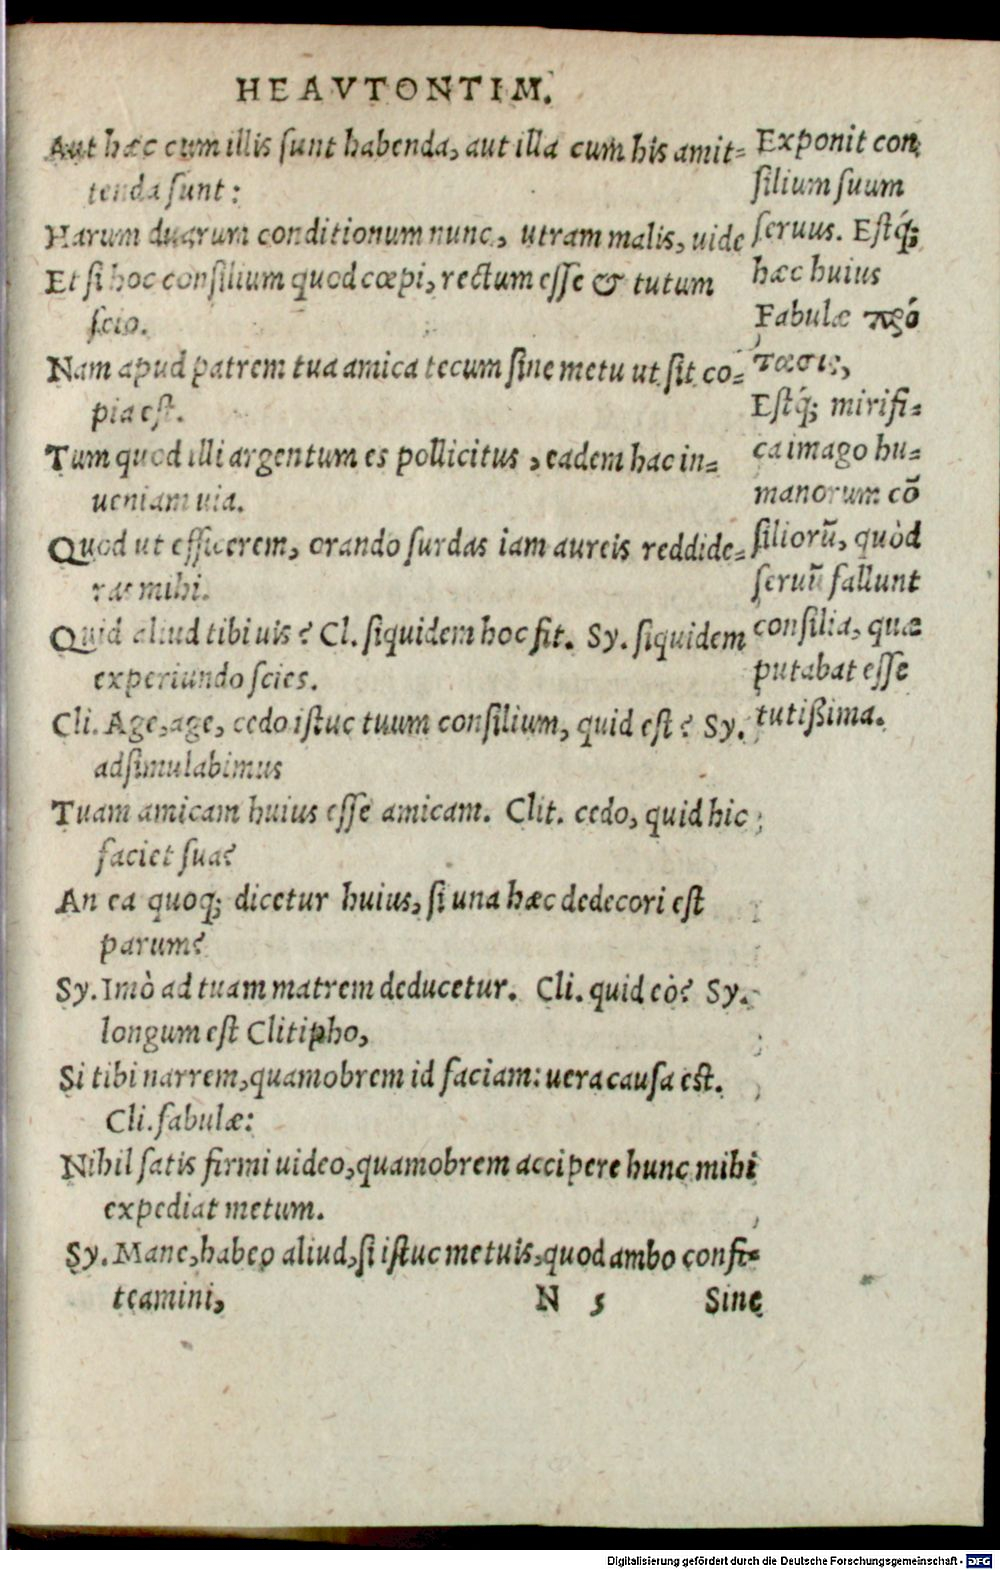 HEAVTONTIM.
Aut hæc cum illis sunt habenda, aut illa cum his amit=
tenda sunt:
Harum duarum conditionum nunc, utram malis, uide
Et si hoc consilium quod cœpi, rectum esse & tutum
scio.
Nam apud patrem tua amica tecum sine metu ut sit co=
pia est.
Tum quod illi argentum es pollicitus, eadem hac in=
ueniam uia.
Quod ut efficerem, orando surdas iam aureis reddide=
ras mihi.
Quid aliud tibi uis? Cl. siquidem hoc fit. Sy. siquidem
experiundo scies.
Cli. Age, age, cedo istuc tuum consilium, quid est? Sy.
adsimulabimus
Tuam amicam huius esse amicam. Clit. cedo, quid hic
faciet sua?
An ea quoq; dicetur huius, si una hæc dedecori est
parum?
Sy. Imò ad tuam matrem deducetur. Cli. quid eò? Sy.
longum est Clitipho,
Si tibi narrem, quamobrem id faciam: uera causa est.
Cli. fabulæ:
Nihil satis firmi uideo, quamobrem accipere hunc mihi
expediat metum.
Sy. Mane, habeo aliud, si istuc metuis, quod ambo confi=
teamini,
N 5 Sine
Exponit con
silium suum
seruus. Estq́;
hæc huius
Fabulæ πρό
τασις,
Estq́; mirifi=
ca imago hu=
manorum cō
siliorū, quòd
seruū fallunt
consilia, quæ
putabat esse
tutißima.
Digitalisierung gefördert durch die Deutsche Forschungsgemeinschaft - DFG